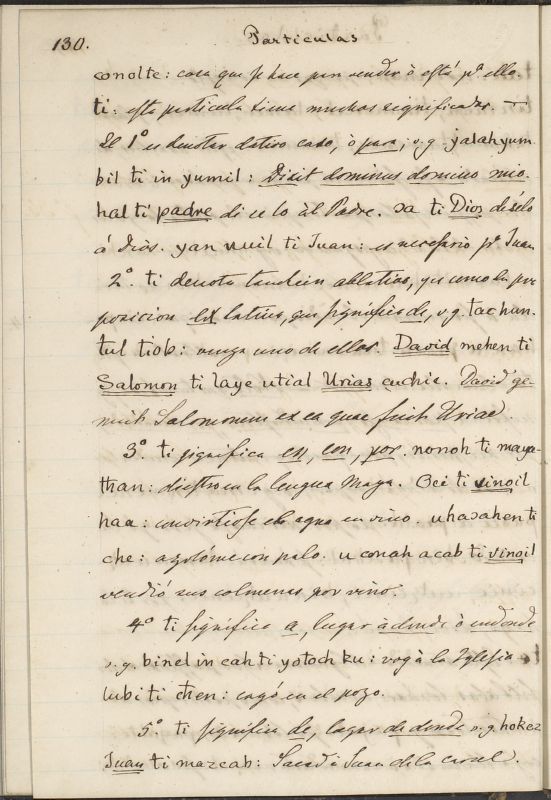 130. Particulas
conolte: cosa que se hace para vender ò està pa. ello.
ti: esta particula tiene muchos significados. —
El 1º es denotar dativo caso, ò para; v.g. yalahyum
bil ti in yumil: Dixit dominus domino meo.
hal tí padre dicelo àl Padre. ɔa ti Dios déselo
á Diòs. yan uuil ti Juan: es necesario pa. Juan
2º. ti denota tambien ablativo, y es como la pre
posicion ex latina, que significa de, v.g. tac hun-
tul tiob: venga uno de ellos. David mehen ti
Salomon ti laye utial Urias cuchie. David ge-
nuit Salomonem ex ea quae fuit Uriae.
3º. ti significa en, con, por. nonoh ti maya-
than: diestro en la lengua Maya. Oci ti vinoil
haa: convirtiose el agua en vino. uhaɔahen ti
che: azotóme con palo. u conah a cab ti vinoil
vendió sus colmenas por vino.
4º ti significa a, lugar àdonde ò endonde
v.g. binel in cah ti yotoch ku: voy à la Iglesia
lubi ti chen: cayó en el pozo.
5º. ti significa de, lugar de donde v.g. hokez
Juan ti mazcab: Sacad à Juan de la carcel.